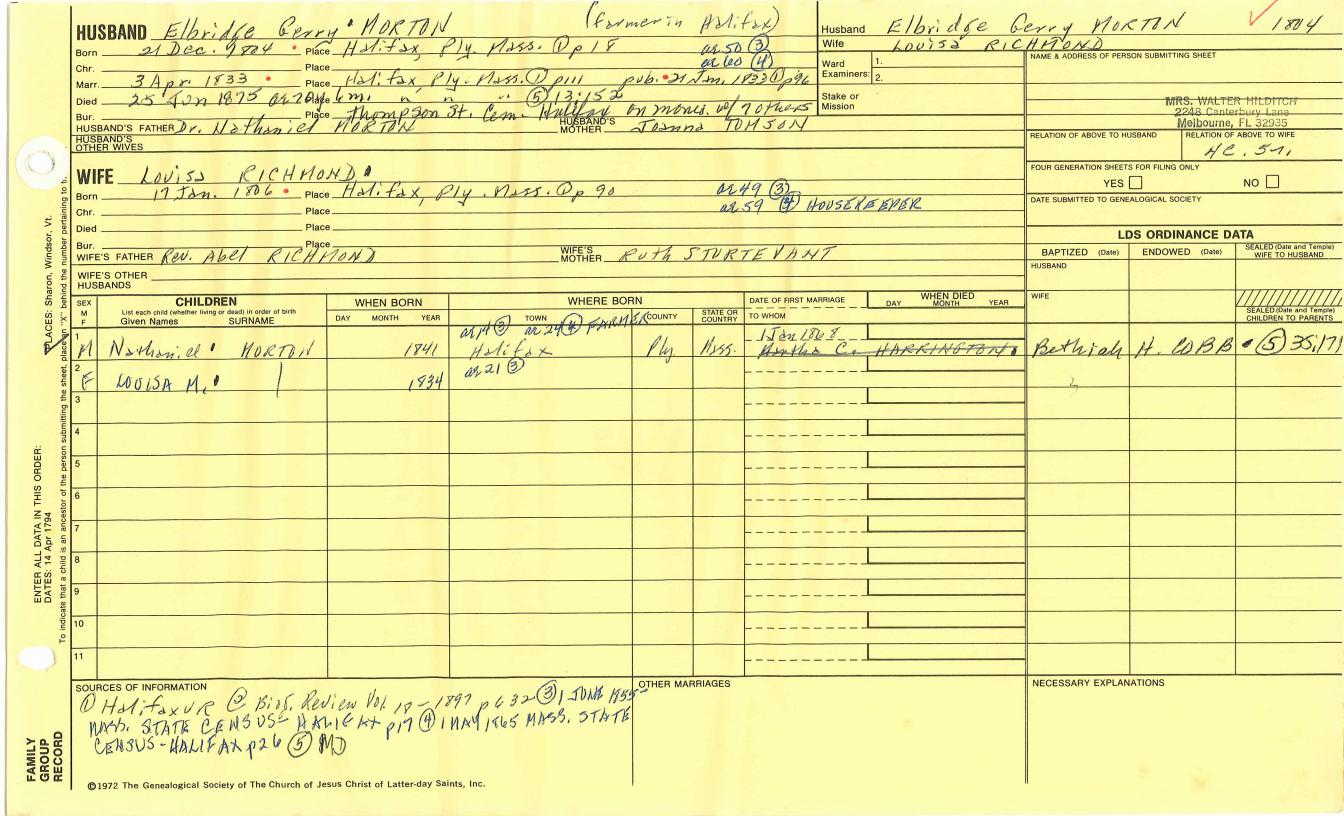 HUSBAND Elbridge Gerry MORTON (farmer in Halifax)
Born 21 Dec. 1804 Place Halifax, Ply. Mass. ① p 18 ae 50 ③
Chr. Place ae 60 ④
Marr. 3 Apr. 1833 Place Halifax, Ply. Mass. ① p111 pub. 21 Jan. 1833 ① p96
Died 25 Jan 1875 ae 70y Place " " " ⑤ 13:152
Bur. Place Thompson St. Cem. Halifax on monu. w/ 7 others
HUSBAND'S FATHER Dr. Nathaniel MORTON HUSBAND'S MOTHER Joanna TOMSON
HUSBAND'S OTHER WIVES
WIFE Louisa RICHMOND
Born 17 Jan. 1806 Place Halifax, Ply. Mass. ① p 90 ae 49 ③
Chr. Place ae 59 ④ HOUSEKEEPER
Died Place
Bur. Place
WIFE'S FATHER Rev. Abel RICHMOND WIFE'S MOTHER Ruth STURTEVANT
WIFE'S OTHER HUSBANDS
Husband Elbridge Gerry MORTON 1804
Wife Louisa RICHMOND
Ward Examiners: 1.
2.
Stake or Mission
NAME & ADDRESS OF PERSON SUBMITTING SHEET
MRS. WALTER HILDITCH
2248 Canterbury Lane
Melbourne, FL 32935
RELATION OF ABOVE TO HUSBAND RELATION OF ABOVE TO WIFE
FOUR GENERATION SHEETS FOR FILING ONLY
YES NO
DATE SUBMITTED TO GENEALOGICAL SOCIETY
LDS ORDINANCE DATA
BAPTIZED (Date) ENDOWED (Date) SEALED (Date and Temple) WIFE TO HUSBAND
HUSBAND
WIFE
SEALED (Date and Temple) CHILDREN TO PARENTS
SEX M F
CHILDREN
List each child (whether living or dead) in order of birth
Given Names SURNAME
WHEN BORN
DAY MONTH YEAR
WHERE BORN
TOWN COUNTY STATE OR COUNTRY
DATE OF FIRST MARRIAGE
TO WHOM
WHEN DIED
DAY MONTH YEAR
ae 14 ③ ae 24 ④ FARMER
1 M Nathaniel MORTON 1841 Halifax Ply Mass. 1 Jan 1868 Martha C. HARRINGTON Bethiah H. COBB ⑤ 35,171
ae 21 ③
2 F LOUISA M. 1834
3
4
5
6
7
8
9
10
11
SOURCES OF INFORMATION
① Halifax VR ② Biog. Review Vol. 18 - 1897 p 632 ③ 1 JUNE 1855
MASS. STATE CENSUS - HALIFAX p17 ④ 1 MAY 1865 MASS. STATE
CENSUS - HALIFAX p26 ⑤ MD
OTHER MARRIAGES
NECESSARY EXPLANATIONS
©1972 The Genealogical Society of The Church of Jesus Christ of Latter-day Saints, Inc.
FAMILY
GROUP
RECORD
ENTER ALL DATA IN THIS ORDER:
DATES: 14 Apr 1794
PLACES: Sharon, Windsor, Vt.
To indicate that a child is an ancestor of the person submitting the sheet, place an "X" behind the number pertaining to